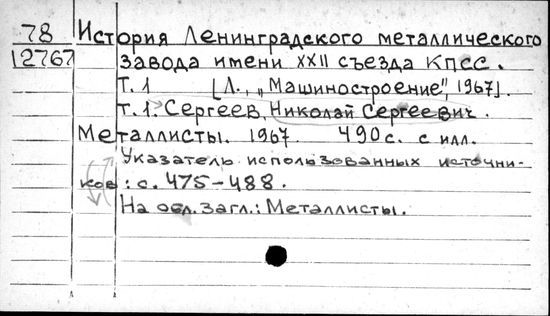 78 История Ленинградского металлического
12767 завода имени XXII съезда КПСС.
Т. 1 [Л., „Машиностроение", 1967].
Т. 1. Сергеев, Николай Сергеевич.
Металлисты. 1967. 490с. с илл.
Указатель использованных источни-
ков: с. 475-488.
На обл. загл.: Металлисты.